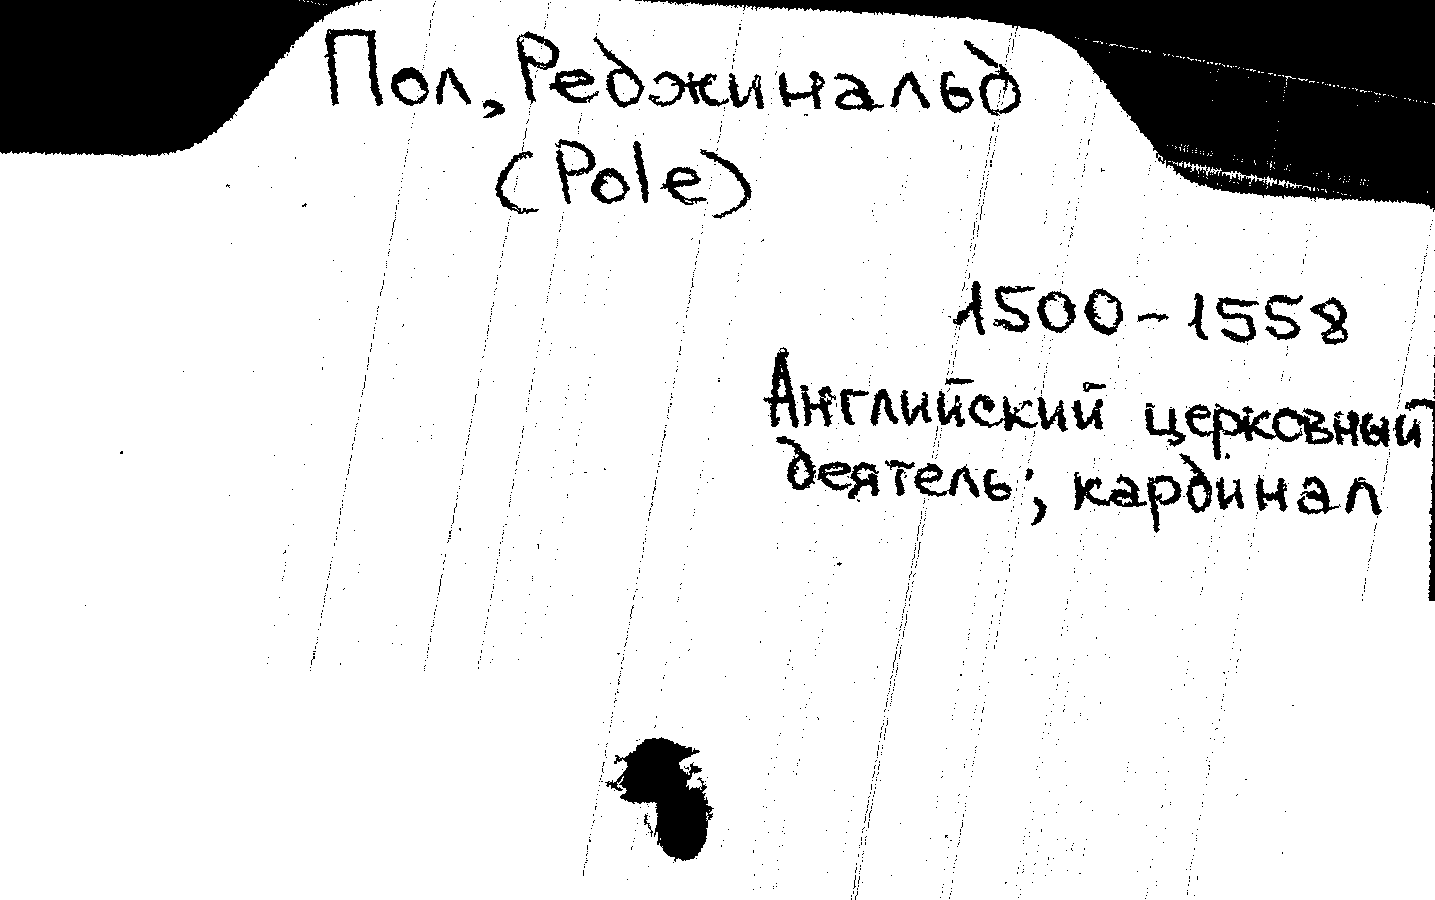 Пол, Реджинальд
(Pole)
1500-1558
Английский церковный
деятель, кардинал